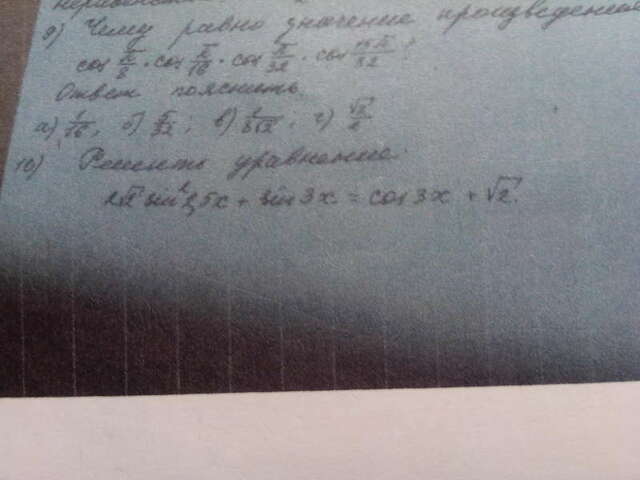 9) Чему равно значение произведения
cos π/8 · cos π/16 · cos π/32
Ответ пояснить.
а) 1/16; б) 1/32; в) 1/8√2; г) √2/
10) Решить уравнение:
sin² 1,5x + sin 3x = cos 3x + √2.